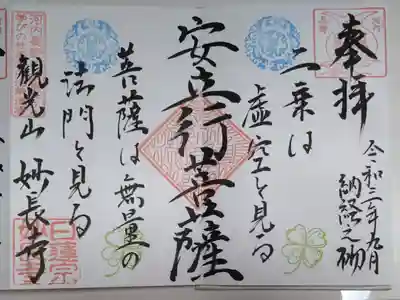 奉拝
令和三年九月
納経之砌
二乗は
虚空を見る
安立行菩薩
菩薩は無量の
法門を見る
観光山 妙長寺
日蓮宗